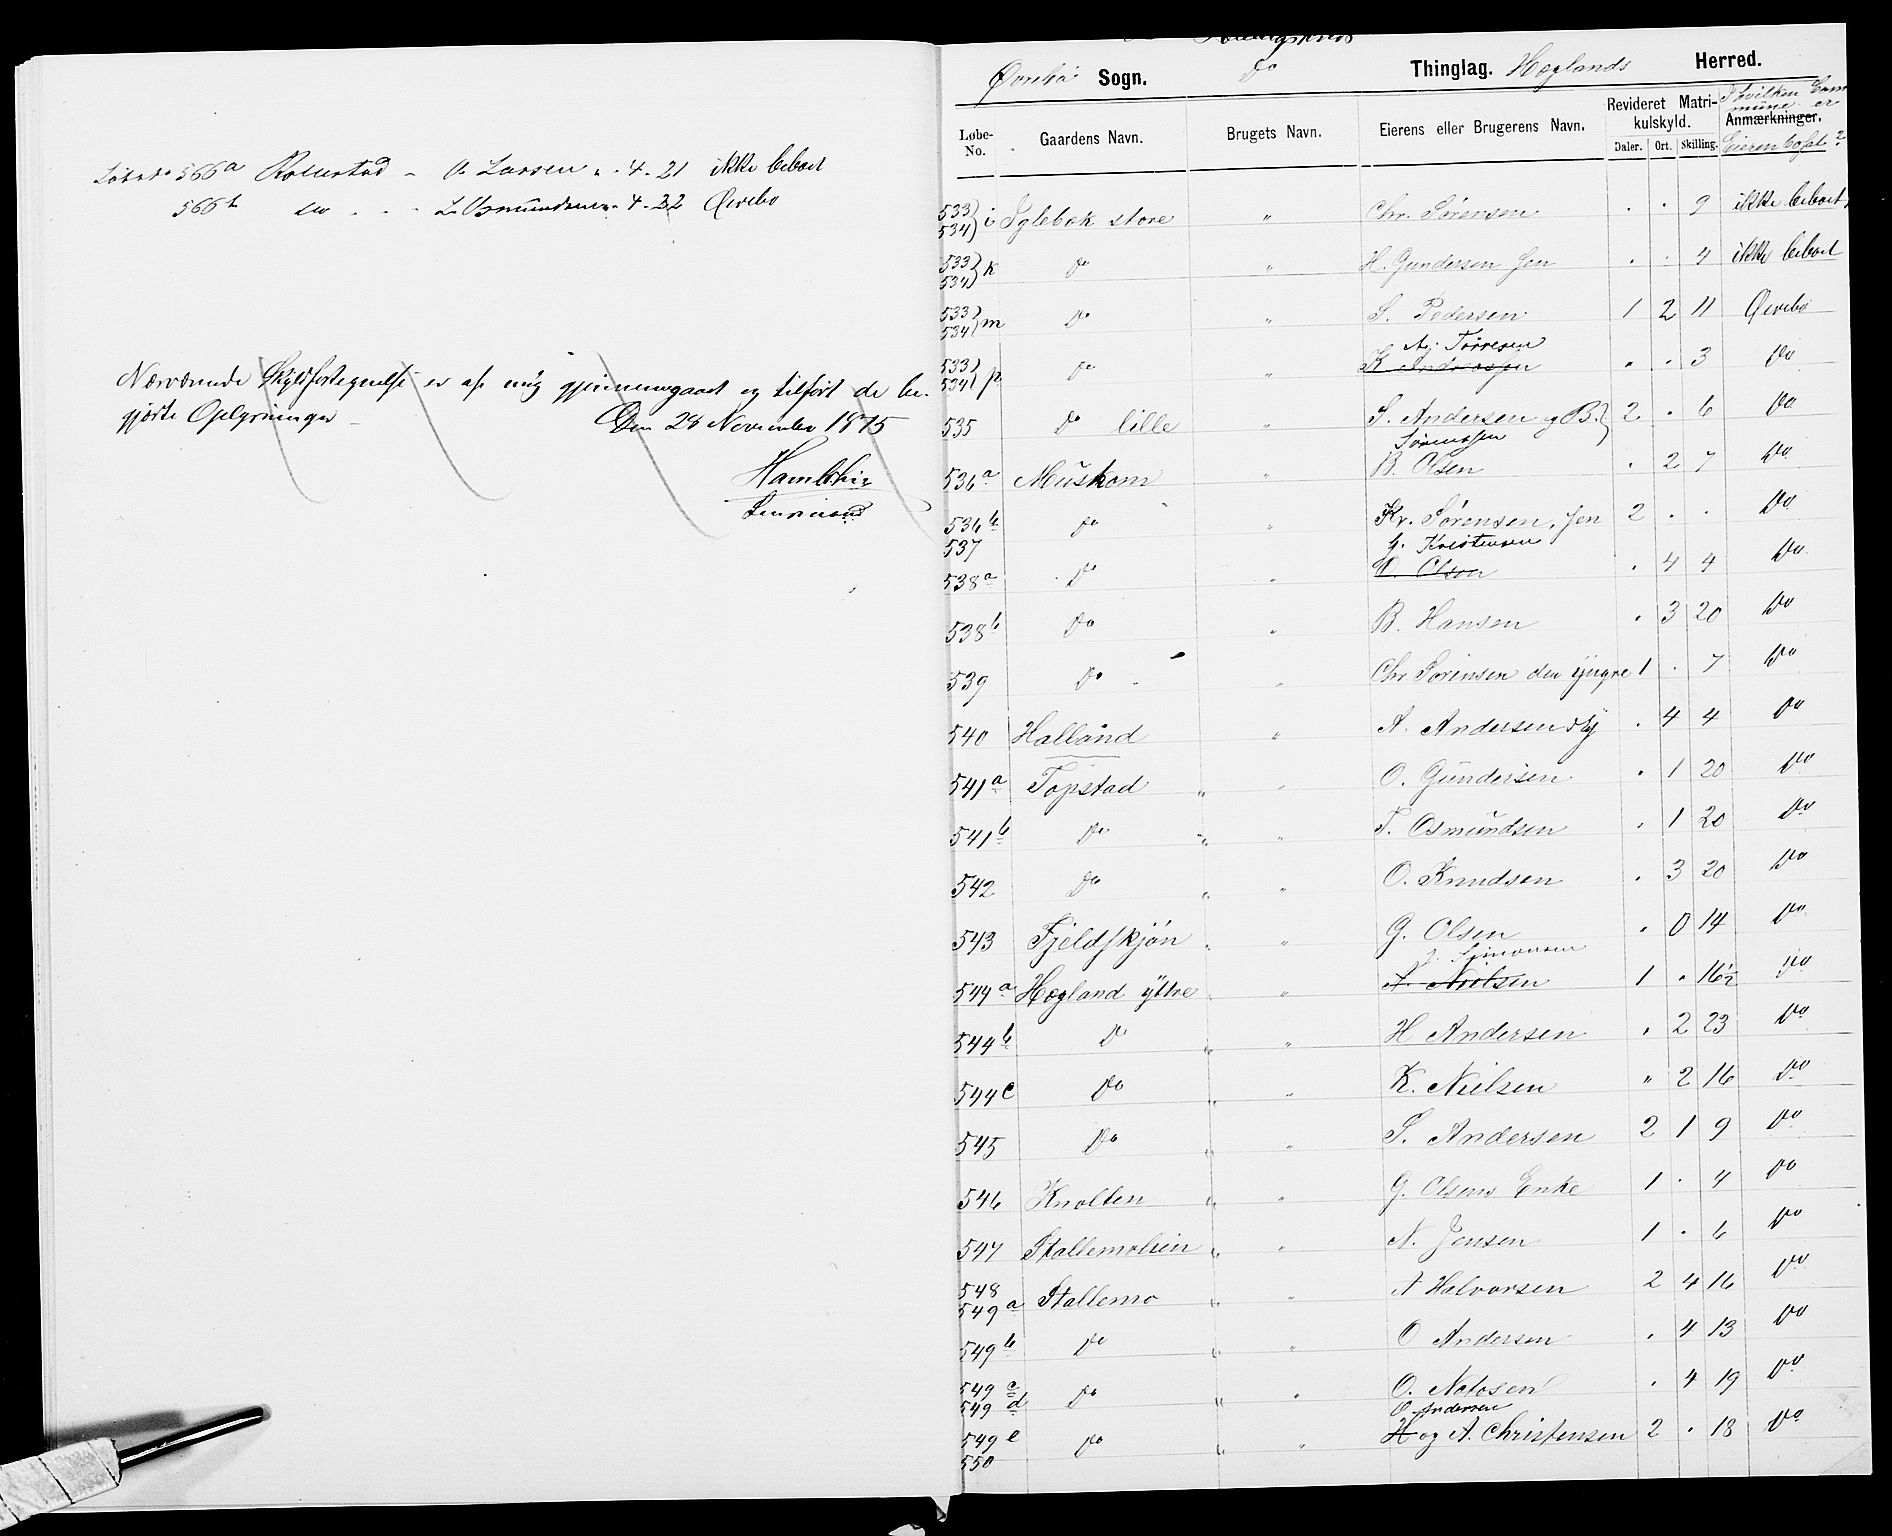 Løbe No 566a Rollerstad - O. Larsen „ . 4 . 21 ikke beboet
566b do . . . L. Osmundsen . 4 . 22 Øvrebø
Nærværende Skyldfortegnelse er af mig gjennemgaaet og tilført de be-
gjærte Oplysninger
Den 28 November 1875
Lensmand
Øvrebø Sogn. Do Thinglag. Hæglands Herred.
Løbe-No. Gaardens Navn. Brugets Navn. Eierens eller Brugerens Navn. Revideret Matrikulskyld. Daler. Ort. Skilling. Anmærkninger. I hvilken Commune er Eieren bosat?
533) 534) i Iglebæk store „ Chr. Sørensen . . 9 ikke beboet
533) 534) k Do „ H. Gundersen Jen . . 4 ikke beboet
533) 534) m Do „ S. Pedersen 1 2 11 Øvrebø
Aj. Tørresen
533) 534) p Do „ K. Andreassen „ . 3 Do
535 Do lille „ S. Andersen og B. Sørensen 2 . 6 Do
536a Muskom „ B. Olsen . 2 7 Do
536b 537 Do „ Kr. Sørensen, Jen 2 . . Do
G. Kristensen
538a Do „ O. Olson . 4 4 Do
538b Do „ B. Hansen . 3 20 Do
539 Do „ Chr Sørensen den yngre 1 . 7 Do
540 Halland „ A. Andersen . 4 4 Do
541a Topstad „ „ O. Gundersen . 1 20 Do
541b Do „ „ T. Osmundsen . 1 20 Do
542 Do „ „ O. Knudsen . 3 20 Do
543 Fjeldskjøn „ „ G. Olsen . 0 14 Do
Simonsen
544a Hægland ytre „ „ A. Nielsen 1 . 16½ Do
544b Do „ „ H Andersen . 2 23 Do
544c Do „ „ K. Nielsen „ 2 16 Do
545 Do „ „ S. Andersen 2 1 9 Do
546 Knolten „ „ G. Olsens Enke 1 . 4 Do
547 Stallemolien „ „ N. Jensen 1 . 6 Do
548 549a Stallemo „ „ A Halvorsen 2 4 16 Do
549b Do „ „ O Andersen . 4 13 Do
549c 549d Do „ „ O. Notosen . 4 19 Do
O Andersen
549e 550 Do „ „ H og A. Christensen 2 . 18 Do